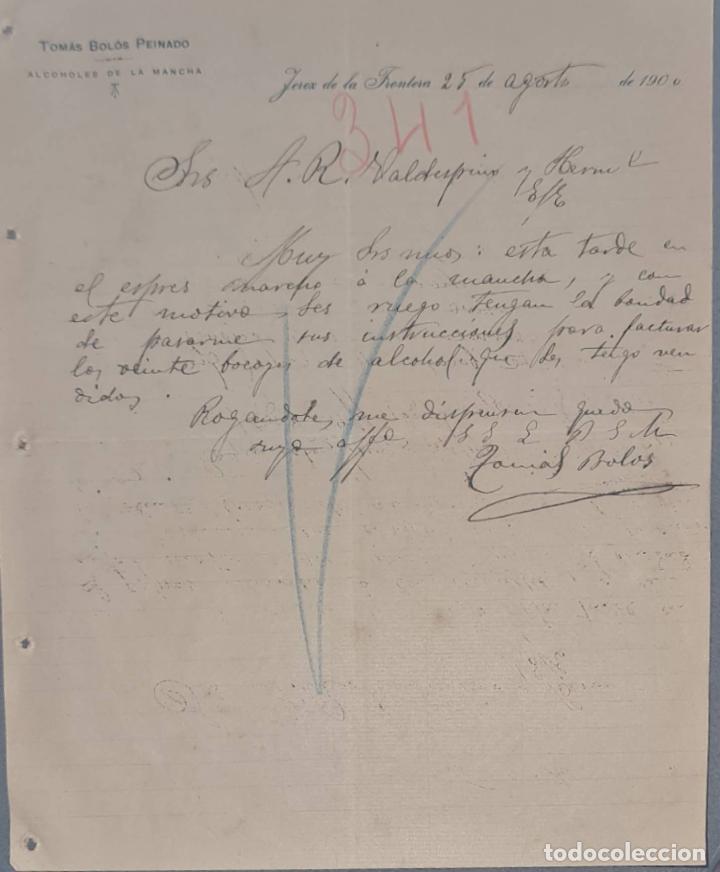 TOMÁS BOLÓS PEINADO
ALCOHOLES DE LA MANCHA
Jerez de la Frontera 25 de agosto de 1900
341
Srs A. R. Valdespino y Hermº
Muy Srs mios: esta tarde en
el espres marcho á la mancha, y con
este motivo les ruego tengan la bondad
de pasarme sus instrucciones para facturar
los veinte bocoyes de alcohol que les tengo ven
didos.
Rogandoles me dispensen queda
suyo affo S S Q B S M
Tomás Bolós
todocoleccion.net